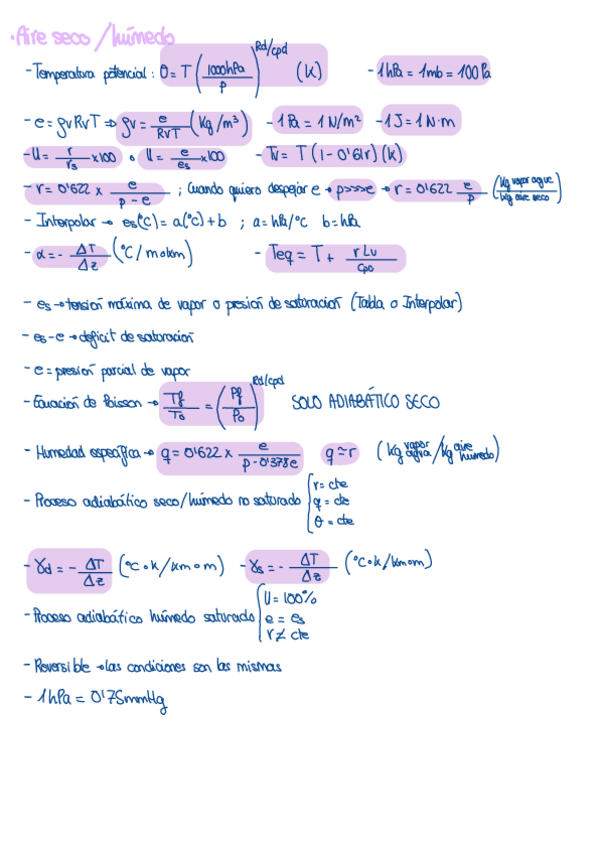 ·Aire seco/húmedo
- Temperatura potencial: θ = T (1000hPa / p)^Rd/cpd (K) - 1hPa = 1mb = 100Pa
- e = ρvRvT ⇒ ρv = e / RvT (Kg/m³) - 1Pa = 1N/m² - 1J = 1N·m
- U = r / rs x100 o U = e / es x100 - Tv = T(1-0'61r)(K)
- r = 0'622 x e / p-e ; Cuando quiero despejar e → p>>>e → r = 0'622 e / p (Kg vapor agua / Kg aire seco)
- Interpolar → es(ºC) = a(ºC)+b ; a = hPa/ºC b = hPa
- α = - ΔT / Δz (ºC/m o km) - Teq = T + rLv / cpd
- es → tensión máxima de vapor o presión de saturación (Tabla o Interpolar)
- es-e → deficit de saturación
- e = presión parcial de vapor
- Ecuación de Poisson → Tf / To = (Pf / Po)^Rd/cpd SOLO ADIABÁTICO SECO
- Humedad específica → q = 0'622 x e / p-0'378e q ≃ r (Kg vapor agua / Kg aire húmedo)
- Proceso adiabático seco/húmedo no saturado { r = cte
q = cte
θ = cte
- γd = - ΔT / Δz (ºC o K/km o m) - γs = - ΔT / Δz (ºC o K/km o m)
- Proceso adiabático húmedo saturado { U = 100%
e = es
r ≠ cte
- Reversible → las condiciones son las mismas
- 1hPa = 0'75mmHg